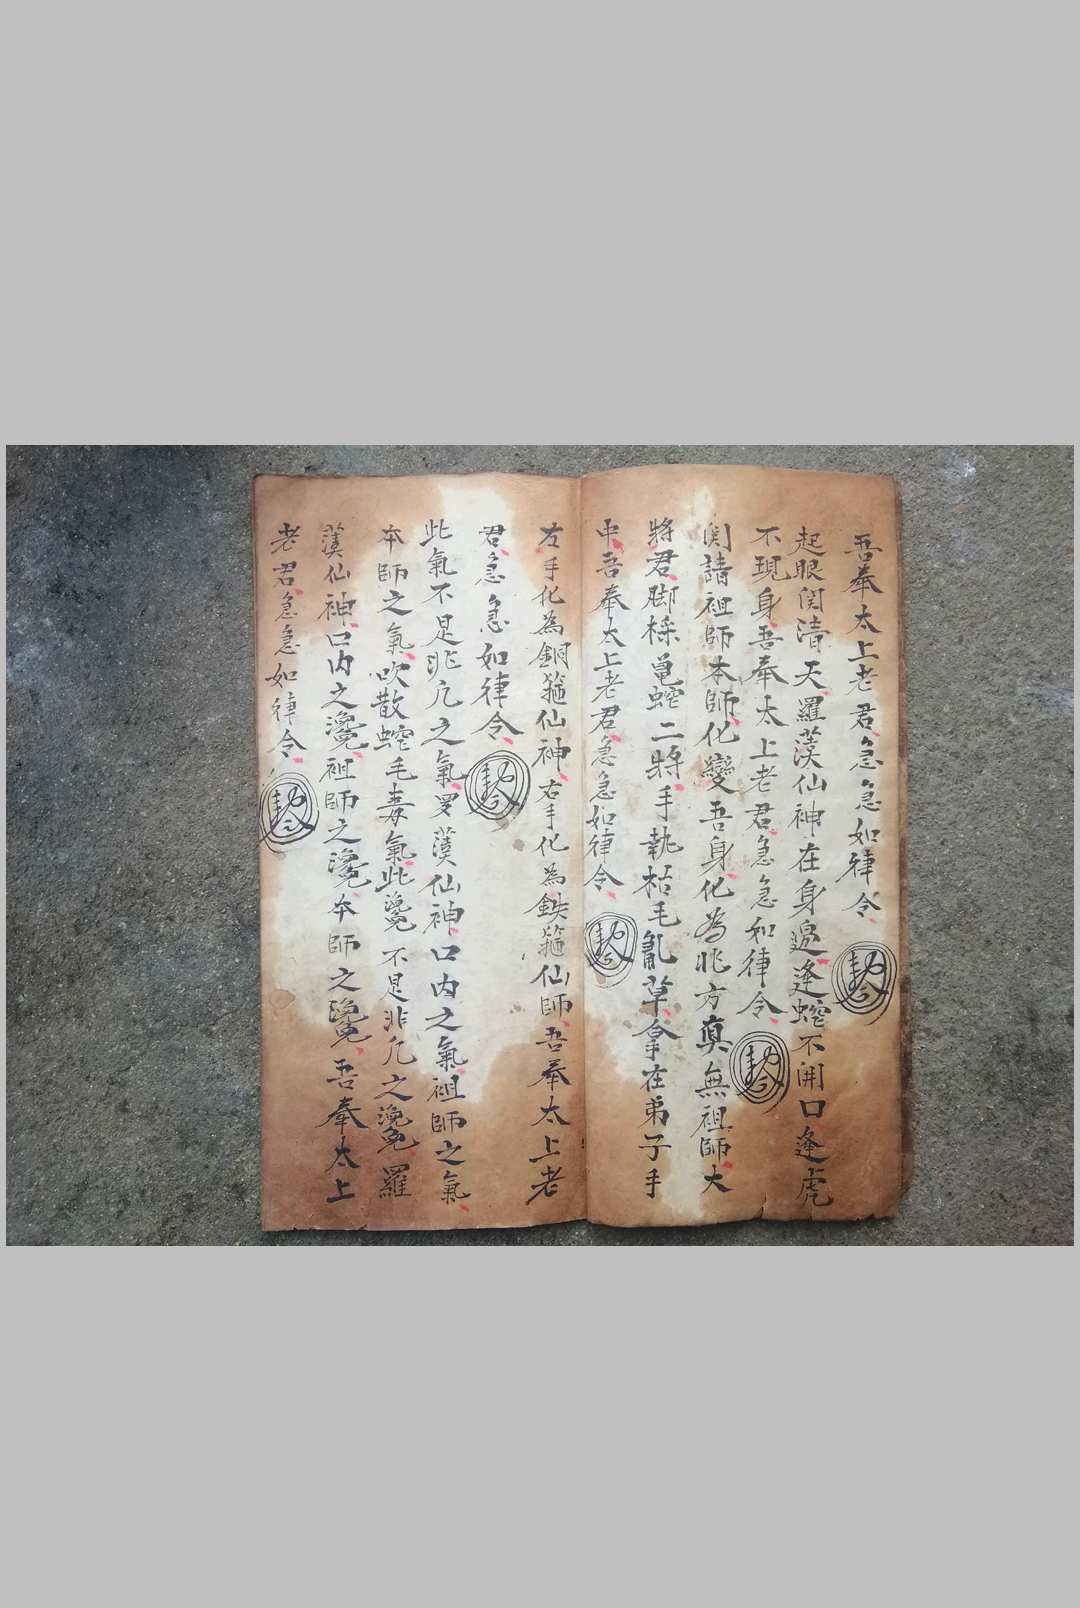 吾奉太上老君急急如律令
起眼関清天羅漢仙神在身邊逢蛇不開口逢虎
不現身吾奉太上老君急急如律令
関請祖師本師化變吾身化為北方真無祖師大
將君脚採龜蛇二將手執枯毛亂草拿在弟子手
中吾奉太上老君急急如律令
左手化為銅箍仙神右手化為鉄箍仙師吾奉太上老
君急急如律令
此氣不是非凡之氣罗漢仙神口内之氣祖師之氣
本師之氣吹散蛇毛毒氣此瀺不是非凡之瀺羅
漢仙神口内之瀺祖師之瀺本師之瀺吾奉太上
老君急急如律令